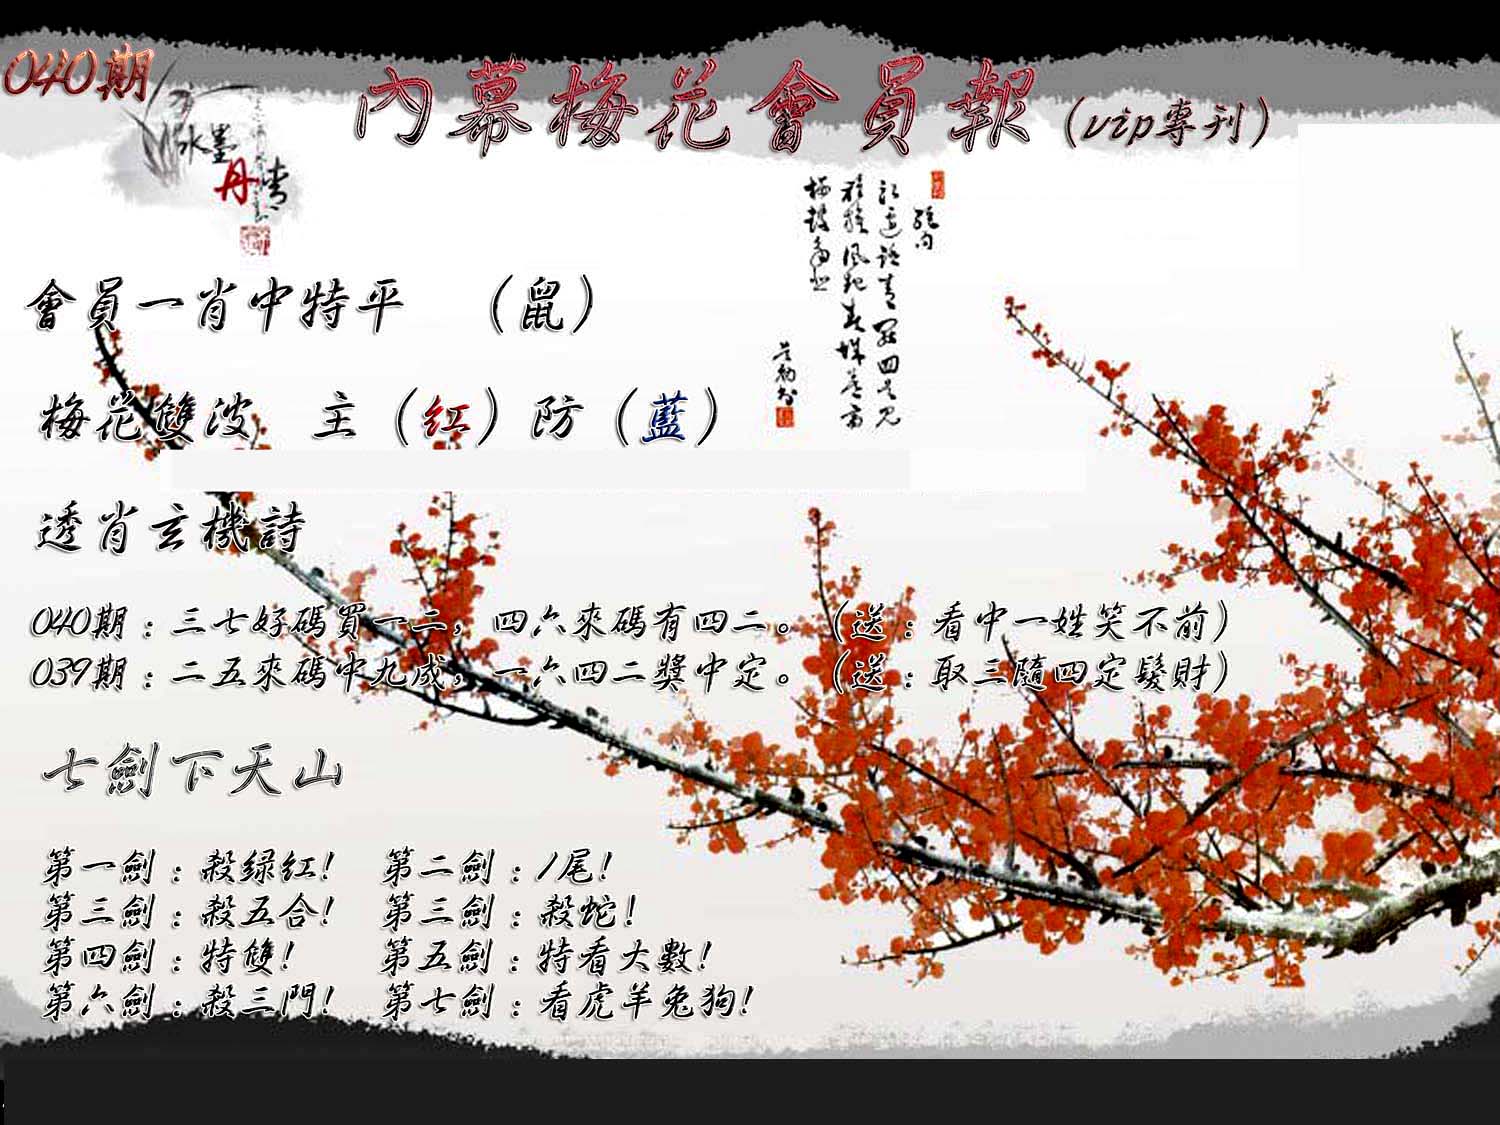 040期
內幕梅花會員報（vip專刊）
水墨
丹青
會員一肖中特平 （鼠）
梅花雙波 主（红）防（藍）
透肖玄機詩
040期：三七好碼買一二，四六來碼有四二。（送：看中一姓笑不前）
039期：二五來碼中九成，一六四二獎中定。（送：取三隨四定髮財）
七劍下天山
第一劍：殺绿红! 第二劍：1尾!
第三劍：殺五合! 第三劍：殺蛇!
第四劍：特雙! 第五劍：特看大數!
第六劍：殺三門! 第七劍：看虎羊兔狗!